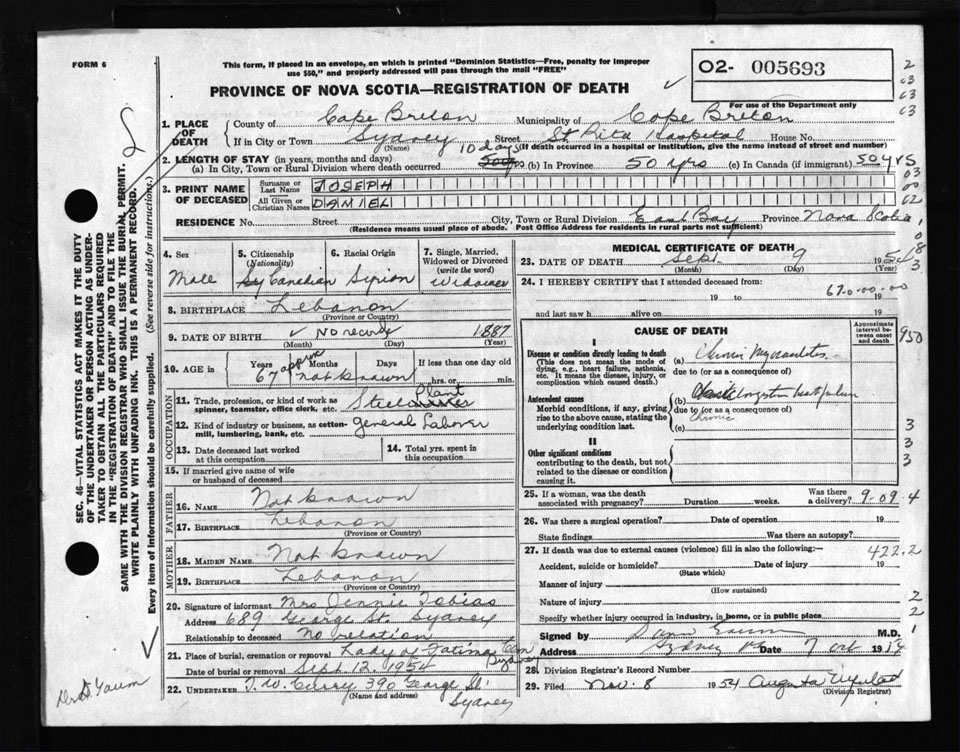 FORM 6
This form, if placed in an envelope, on which is printed "Dominion Statistics—Free, penalty for improper
use $50," and properly addressed will pass through the mail "FREE"
PROVINCE OF NOVA SCOTIA—REGISTRATION OF DEATH
O2- 005693
For use of the Department only
2
03
63
63
1. PLACE OF DEATH
County of Cape Breton Municipality of Cape Breton
If in City or Town Sydney Street St Rita Hospital House No.
(Name) (If death occurred in a hospital or institution, give the name instead of street and number)
2. LENGTH OF STAY (in years, months and days)
(a) In City, Town or Rural Division where death occurred 10 days (b) In Province 50 yrs (c) In Canada (if immigrant) 50 yrs
03
00
62
3. PRINT NAME OF DECEASED
Surname or Last Name JOSEPH
All Given or Christian Names DANIEL
RESIDENCE No. Street City, Town or Rural Division East Bay Province Nova Scotia
(Residence means usual place of abode. Post Office Address for residents in rural parts not sufficient)
4. Sex Male
5. Citizenship (Nationality) Canadian
6. Racial Origin Sirion
7. Single, Married, Widowed or Divorced (write the word) Widower
8. BIRTHPLACE Lebanon
(Province or Country)
9. DATE OF BIRTH No record 1887
(Month) (Day) (Year)
10. AGE in Years Months Days If less than one day old
67 not known hrs. or min.
OCCUPATION
11. Trade, profession, or kind of work as spinner, teamster, office clerk, etc. Steel Plant
12. Kind of industry or business, as cotton-mill, lumbering, bank, etc. general Laborer
13. Date deceased last worked at this occupation
14. Total yrs. spent in this occupation
15. If married give name of wife or husband of deceased
FATHER
16. NAME Not known
17. BIRTHPLACE Lebanon
MOTHER
18. MAIDEN NAME Not known
19. BIRTHPLACE Lebanon
(Province or Country)
20. Signature of informant Mrs Jennie Tobias
Address 689 George St. Sydney
Relationship to deceased No relation
21. Place of burial, cremation or removal Lady of Fatima Cem Sydney
Date of burial or removal Sept 12, 1954
22. UNDERTAKER T. W. Curry 390 George St
(Name and address) Sydney
MEDICAL CERTIFICATE OF DEATH
23. DATE OF DEATH Sept. 9 1954
(Month) (Day) (Year)
24. I HEREBY CERTIFY that I attended deceased from:
67-0-00-00
19 to 19
and last saw h alive on 19
CAUSE OF DEATH
Approximate interval between onset and death
950
I
Disease or condition directly leading to death
(This does not mean the mode of dying, e.g., heart failure, asthenia, etc. It means the disease, injury, or complication which caused death.)
(a) Chronic Myocarditis
due to (or as a consequence of)
Antecedent causes
Morbid conditions, if any, giving rise to the above cause, stating the underlying condition last.
(b)
due to (or as a consequence of)
Chronic
(c)
3
3
3
II
Other significant conditions
contributing to the death, but not related to the disease or condition causing it.
25. If a woman, was the death associated with pregnancy? Duration weeks. Was there a delivery?
9-09-4
26. Was there a surgical operation? Date of operation 19
State findings Was there an autopsy?
27. If death was due to external causes (violence) fill in also the following:—
422.2
Accident, suicide or homicide? Date of injury 19
(State which)
Manner of injury
(How sustained)
Nature of injury
2
Specify whether injury occurred in industry, in home, or in public place
2
Signed by M.D.
1
Address Sydney Date 7 Oct 19
28. Division Registrar's Record Number
29. Filed Nov. 8 1954 Augusta
(Division Registrar)
SEC. 46—VITAL STATISTICS ACT MAKES IT THE DUTY
OF THE UNDERTAKER OR PERSON ACTING AS UNDER-
TAKER TO OBTAIN ALL THE PARTICULARS REQUIRED
IN THE "REGISTRATION OF DEATH" AND TO FILE THE
SAME WITH THE DIVISION REGISTRAR WHO SHALL ISSUE THE BURIAL PERMIT.
WRITE PLAINLY WITH UNFADING INK. THIS IS A PERMANENT RECORD.
Every item of Information should be carefully supplied. (See reverse side for instructions.)